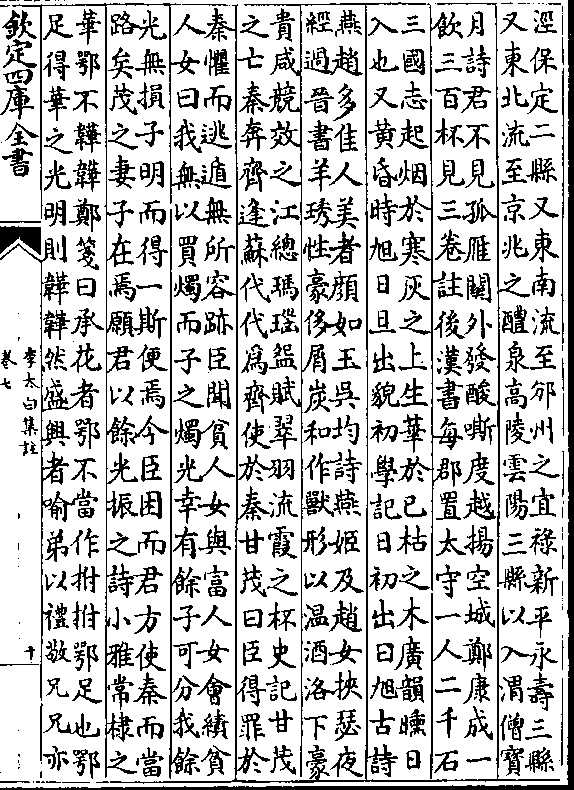 涇保定二縣又東南流至邠州之宜祿新平永壽三縣
又東北流至京兆之醴泉高陵雲陽三縣以入渭僧寶
月詩君不見孤雁關外發酸嘶度越揚空城鄭康成一
飲三百杯見三卷註後漢書每郡置太守一人二千石
三國志起烟於寒灰之上生華於已枯之木廣韻曛日
入也又黃昏時旭日旦出貌初學記日初出曰旭古詩
燕趙多佳人美者顏如玉吳均詩燕姬及趙女挾瑟夜
經過晉書羊琇性豪侈屑炭和作獸形以温酒洛下豪
貴咸競效之江總瑪瑙盌賦翠羽流霞之杯史記甘茂
之亡秦奔齊逢蘇代代爲齊使於秦甘茂曰臣得罪於
秦懼而逃遁無所容跡臣聞貧人女與富人女會績貧
人女曰我無以買燭而子之燭光幸有餘子可分我餘
光無損子明而得一斯便焉今臣困而君方使秦而當
路矣茂之妻子在焉願君以餘光振之詩小雅常棣之
華鄂不韡韡鄭箋曰承花者鄂不當作拊拊鄂足也鄂
足得華之光明則韡韡然盛興者喻弟以禮敬兄兄亦
欽定四庫全書
李太白集註
卷七
十